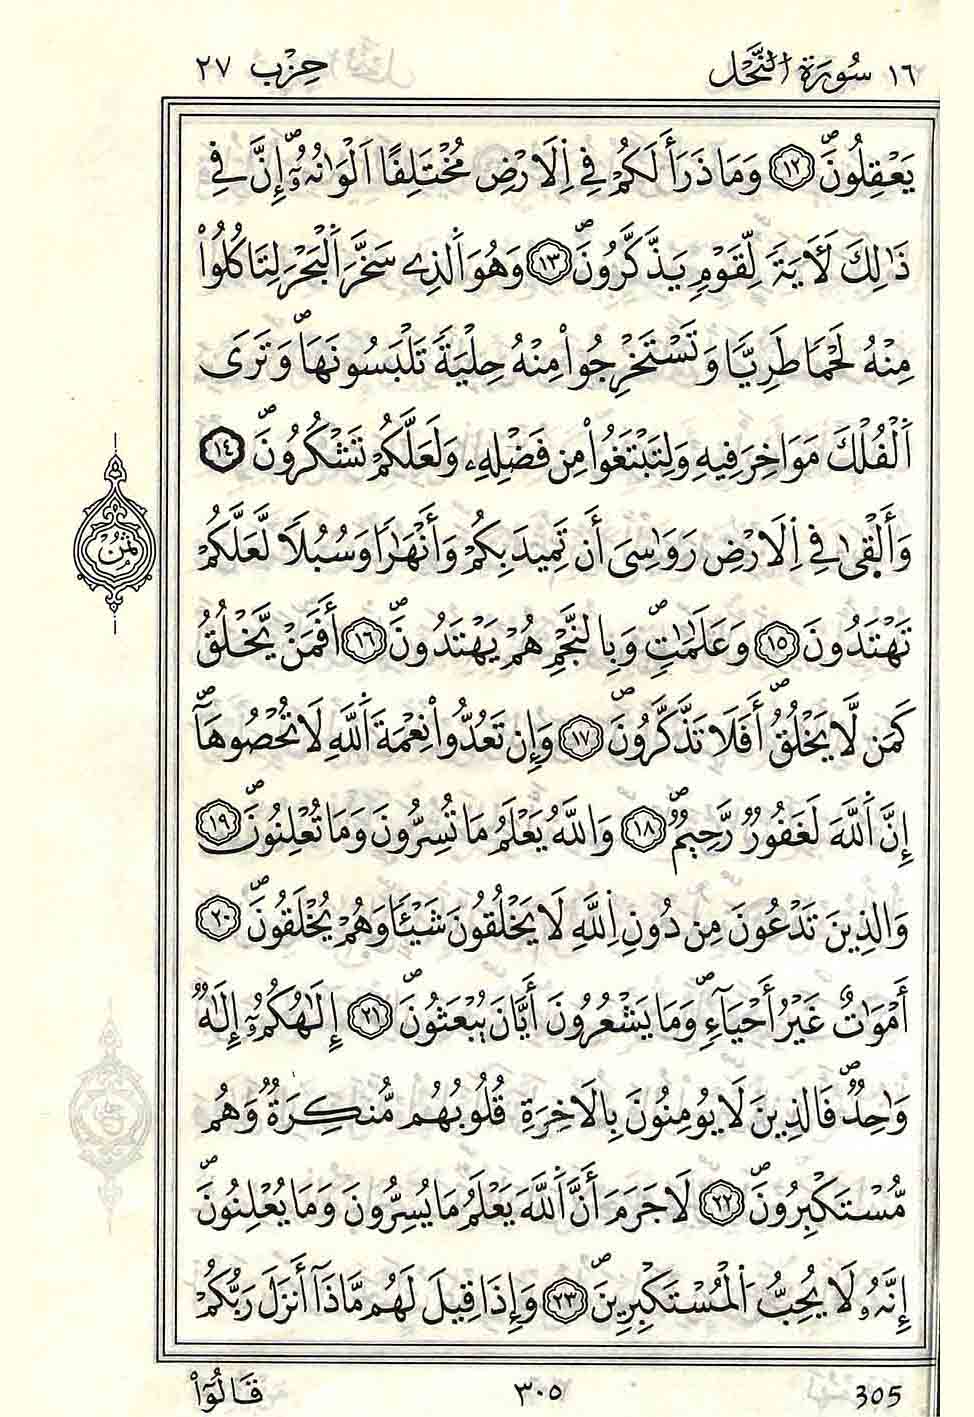 ١٦ سُورَةُ النَّحْلِ حِزْب ٢٧
يَعْقِلُونَۖ ١٢ وَمَا ذَرَأَ لَكُمْ فِے اِ۬لَارْضِ مُخْتَلِفًا اَلْوَٰنُهُۥٓۖ إِنَّ فِے
ذَٰلِكَ لَأٓيَةٗ لِّقَوْمٖ يَذَّكَّرُونَۖ ١٣ وَهُوَ اَ۬لذِے سَخَّرَ اَ۬لْبَحْرَ لِتَاكُلُواْ
مِنْهُ لَحْمٗا طَرِيّٗا وَتَسْتَخْرِجُواْ مِنْهُ حِلْيَةٗ تَلْبَسُونَهَاۖ وَتَرَى
اَ۬لْفُلْكَ مَوَاخِرَ فِيهِ وَلِتَبْتَغُواْ مِن فَضْلِهِۦ وَلَعَلَّكُمْ تَشْكُرُونَۖ ١٤
وَأَلْقَىٰ فِے اِ۬لَارْضِ رَوَٰسِيَ أَن تَمِيدَ بِكُمْ وَأَنْهَٰرٗا وَسُبُلٗا لَّعَلَّكُمْ
ثُمُن
تَهْتَدُونَ ١٥ وَعَلَٰمَٰتٖۖ وَبِالنَّجْمِ هُمْ يَهْتَدُونَۖ ١٦ أَفَمَنْ يَّخْلُقُ
كَمَن لَّا يَخْلُقُۖ أَفَلَا تَذَّكَّرُونَۖ ١٧ وَإِن تَعُدُّواْ نِعْمَةَ اَ۬للَّهِ لَا تُحْصُوهَآۖ
إِنَّ اَ۬للَّهَ لَغَفُورٞ رَّحِيمٞۖ ١٨ وَاللَّهُ يَعْلَمُ مَا تُسِرُّونَ وَمَا تُعْلِنُونَۖ ١٩
وَالذِينَ تَدْعُونَ مِن دُونِ اِ۬للَّهِ لَا يَخْلُقُونَ شَيْـٔٗا وَهُمْ يُخْلَقُونَۖ ٢٠
أَمْوَٰتٌ غَيْرُ أَحْيَآءٖۖ وَمَا يَشْعُرُونَ أَيَّانَ يُبْعَثُونَۖ ٢١ إِلَٰهُكُمُۥٓ إِلَٰهٞ
وَٰحِدٞۖ فَالذِينَ لَا يُومِنُونَ بِالَاخِرَةِ قُلُوبُهُم مُّنكِرَةٞ وَهُم
مُّسْتَكْبِرُونَۖ ٢٢ لَا جَرَمَ أَنَّ اَ۬للَّهَ يَعْلَمُ مَا يُسِرُّونَ وَمَا يُعْلِنُونَۖ
إِنَّهُۥ لَا يُحِبُّ اُ۬لْمُسْتَكْبِرِينَۖ ٢٣ وَإِذَا قِيلَ لَهُم مَّاذَآ أَنزَلَ رَبُّكُمْ
قَالُوٓاْ ٣٠٥ 305